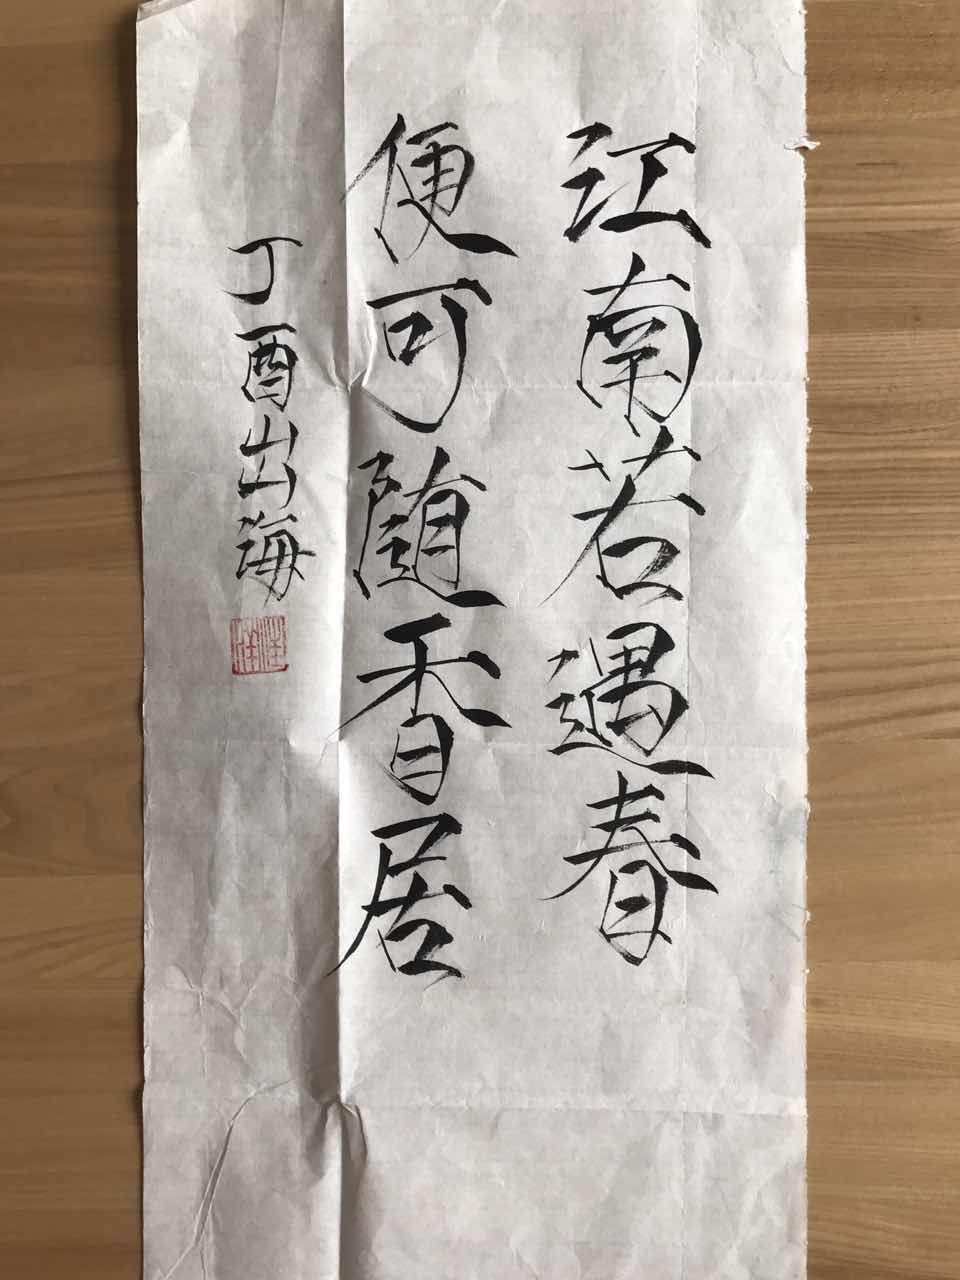 江南若遇春
便可随香居
丁酉出海